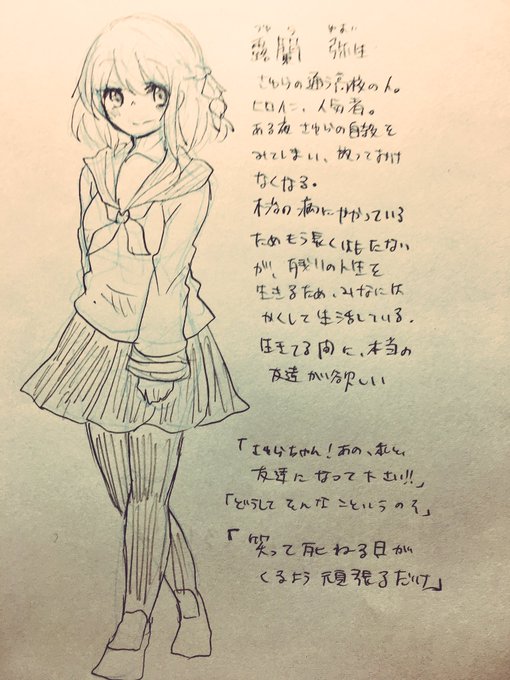 弥生
の通う高校の人。
ヒロイン、人気者。
ある夜 の自殺を
みてしまい、放っておけ
なくなる。
不治の病にかかっている
ためもう長くはもたない
が、残りの人生を
生きるため、みなには
かくして生活している。
生きてる間に、本当の
友達が欲しい
「 ちゃん!あの、私と、
友達になって下さい!!」
「どうしてそんなこというのそ」
「笑って死ねる日が
くるよう頑張るだけ」